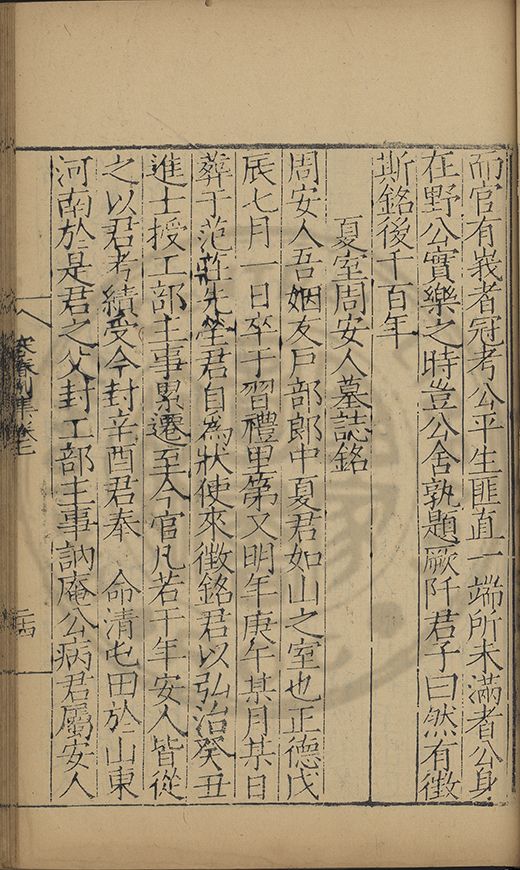 而官有嶷者冠考公平生匪直一端所未滿者公身
在野公實樂之時豈公舍孰題厥阡君子曰然有徵
斯銘後千百年
夏室周安人墓誌銘
周安人吾姻友戶部郎中夏君如山之室也正德戊
辰七月一日卒于習禮里第又明年庚午某月某日
葬于范莊先塋君自為狀使來徵銘君以弘治癸丑
進士授工部主事累遷至今官凡若干年安人皆從
之以君考績受今封辛酉君奉 命清屯田於山東
河南於是君之父封工部主事訥庵公病君屬安人
容春別集卷七
二十四